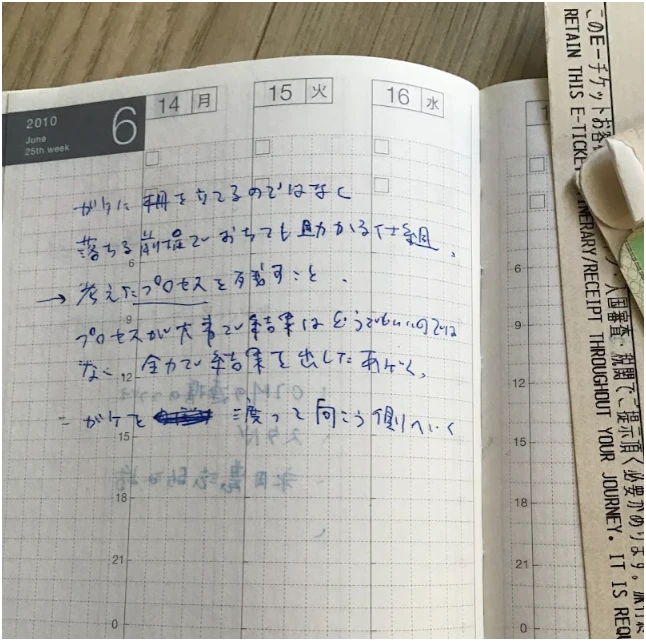 2010
June
25th week
6
14 月
15 火
16 水
1
がケに柵を立てるのではなく
落ちる前提でおちても助かる仕組。
→ 考えたプロセスを残すこと。
プロセスが大事で結果はどうでもいいのでは
ない 全力で結果を出したあげく、
= がケを 渡って向こう側へいく
6
9
12
15
18
21
0
6
9
12
15
18
21
0
このEーチケットお客
RETAIN THIS E-TICKE INERARY/RECEIPT THROUGHOUT YOUR JOURNEY. IT IS REQU
入国審査、税関でご提示頂く必要があります。